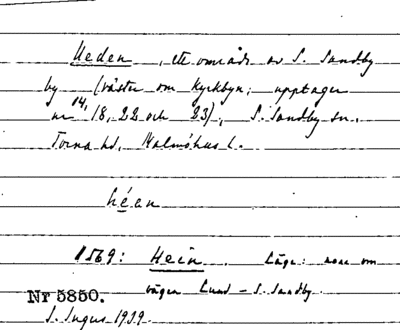 Heden, ett område av S. Sandby
by (väster om kyrkbyn; upptager
nr 14, 18, 22 och 23), S. Sandby sn.
Torna hd, Malmöhus l.
héan
1569: Hein. Läge: norr om
vägen Lund – S. Sandby.
Nr 5850.
S. Ingers 1939.